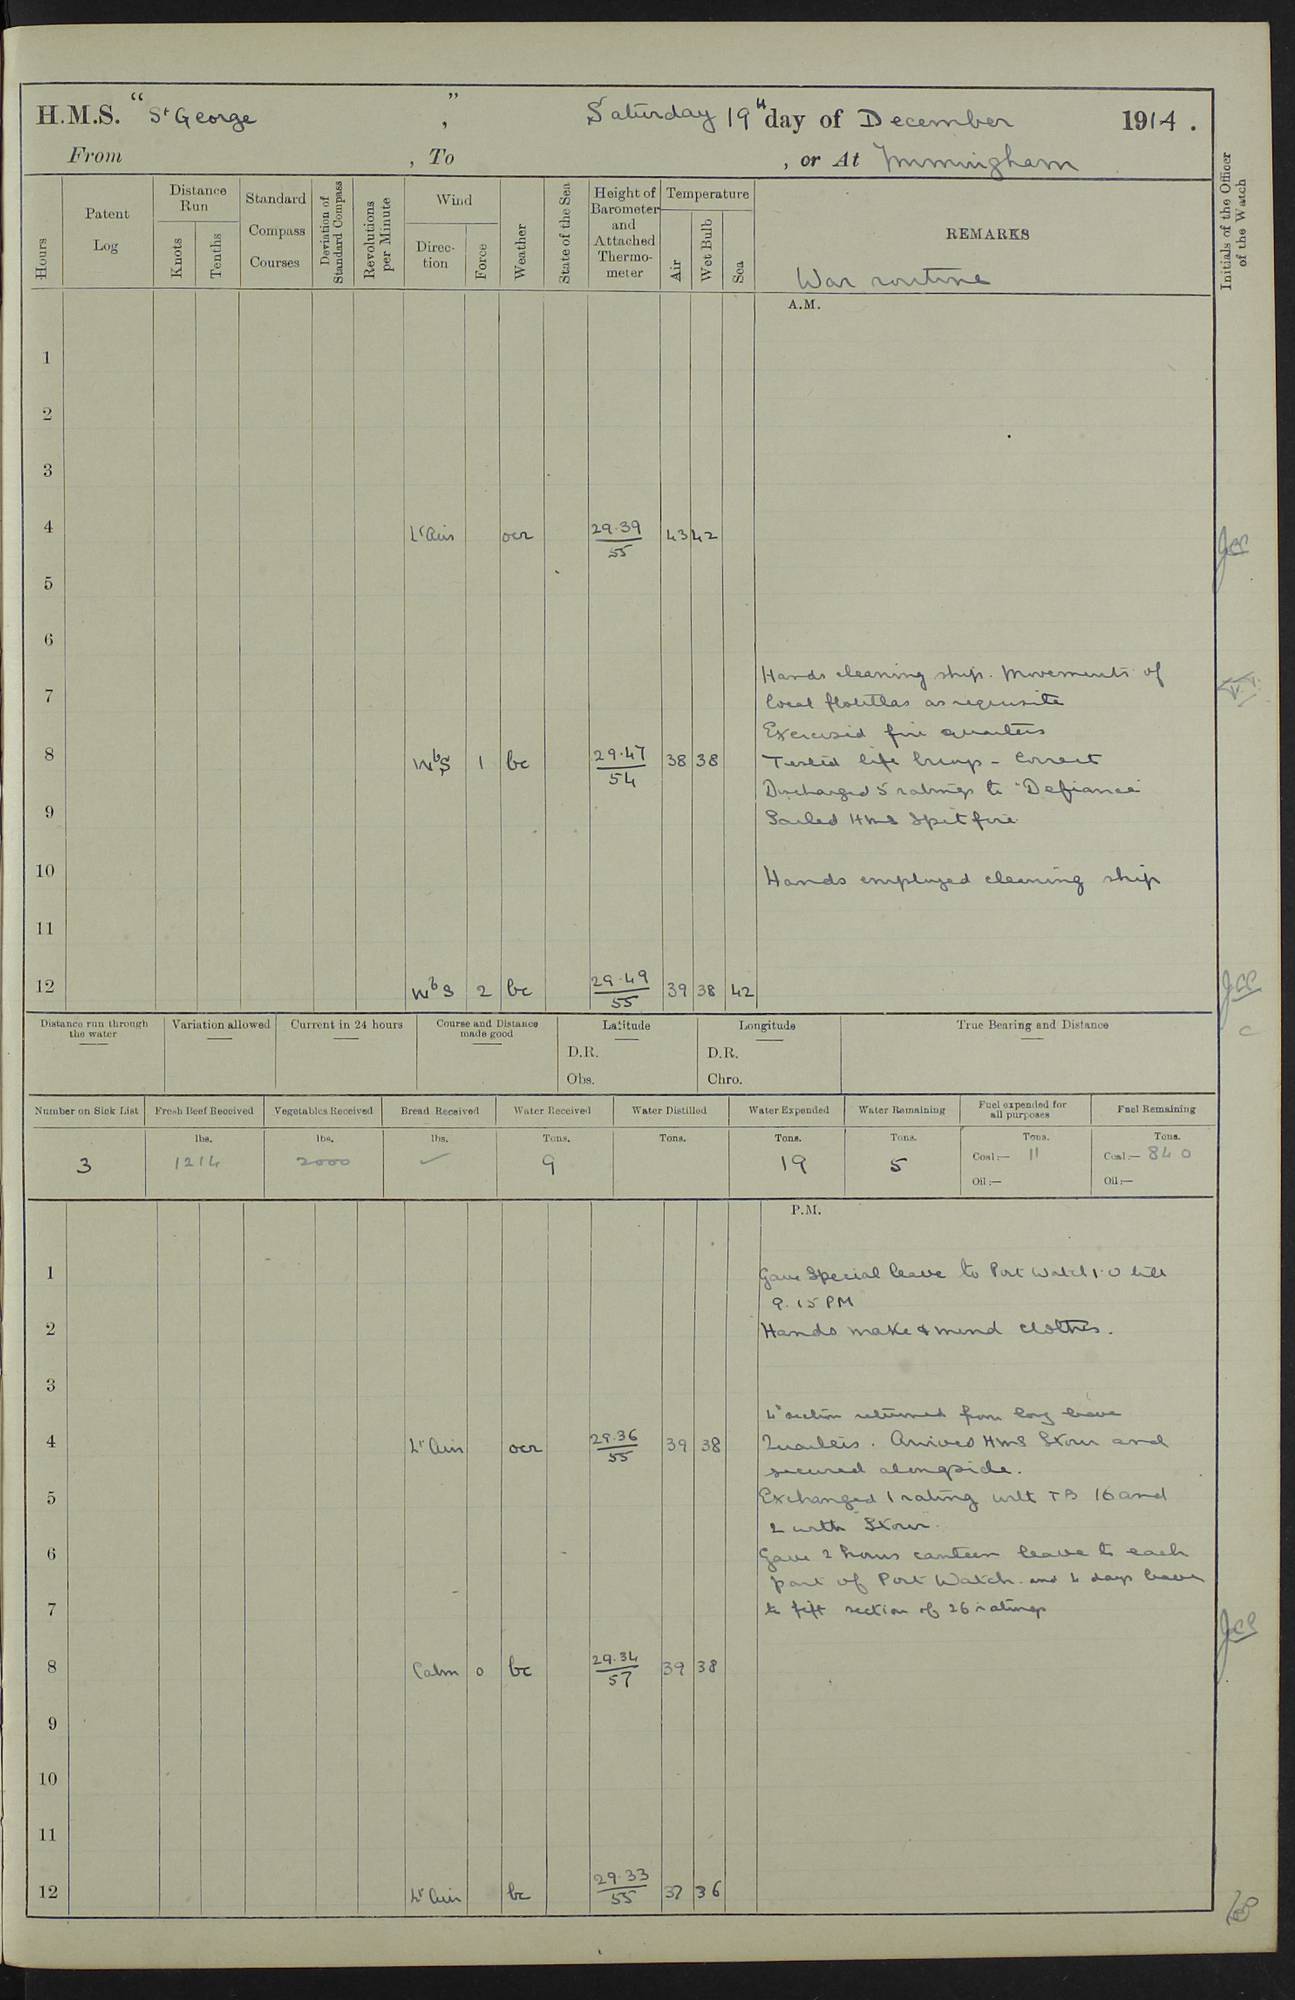 H.M.S. "St George", Saturday 19th day of December 1914.
From , To , or At Immingham
Hours
Patent Log
Distance Run
Knots
Tenths
Standard Compass Courses
Deviation of Standard Compass
Revolutions per Minute
Wind
Direc-tion
Force
Weather
State of the Sea
Height of Barometer and Attached Thermo-meter
Temperature
Air
Wet Bulb
Sea
REMARKS
Initials of the Officer of the Watch
War routine
A.M.
1
2
3
4 Lt Airs ocr 29.39/55 43 42
5
6
Hands cleaning ship. Movements of
7 local flotillas as requisite
Exercised fire quarters
8 WbS 1 bc 29.47/54 38 38 Tested life buoys - Correct
Discharged 5 ratings to "Defiance"
9 Sailed HMS Spitfire
10 Hands employed cleaning ship
11
12 WbS 2 bc 29.49/55 39 38 42
Distance run through the water
Variation allowed
Current in 24 hours
Course and Distance made good
Latitude
D.R.
Obs.
Longitude
D.R.
Chro.
True Bearing and Distance
Number on Sick List
Fresh Beef Received
Vegetables Received
Bread Received
Water Received
Water Distilled
Water Expended
Water Remaining
Fuel expended for all purposes
Fuel Remaining
lbs. lbs. lbs. Tons. Tons. Tons. Tons. Tons. Tons.
3 1214 2000 ✓ 9 19 5 Coal:— 11 Coal:— 840
Oil:— Oil:—
P.M.
1 Gave Special leave to Port Watch 1.0 till
9.15 PM
2 Hands make & mend clothes.
3
4th section returned from long leave
4 Lt Airs ocr 29.36/55 39 38 Quarters. Arrived HMS Stour and
secured alongside.
5 Exchanged 1 rating with TB 16 and
2 with "Stour".
6 Gave 2 hours canteen leave to each
part of Port Watch. and 4 days leave
7 to fift section of 26 ratings
8 Calm 0 bc 29.34/57 39 38
9
10
11
12 Lt Airs bc 29.33/55 37 36